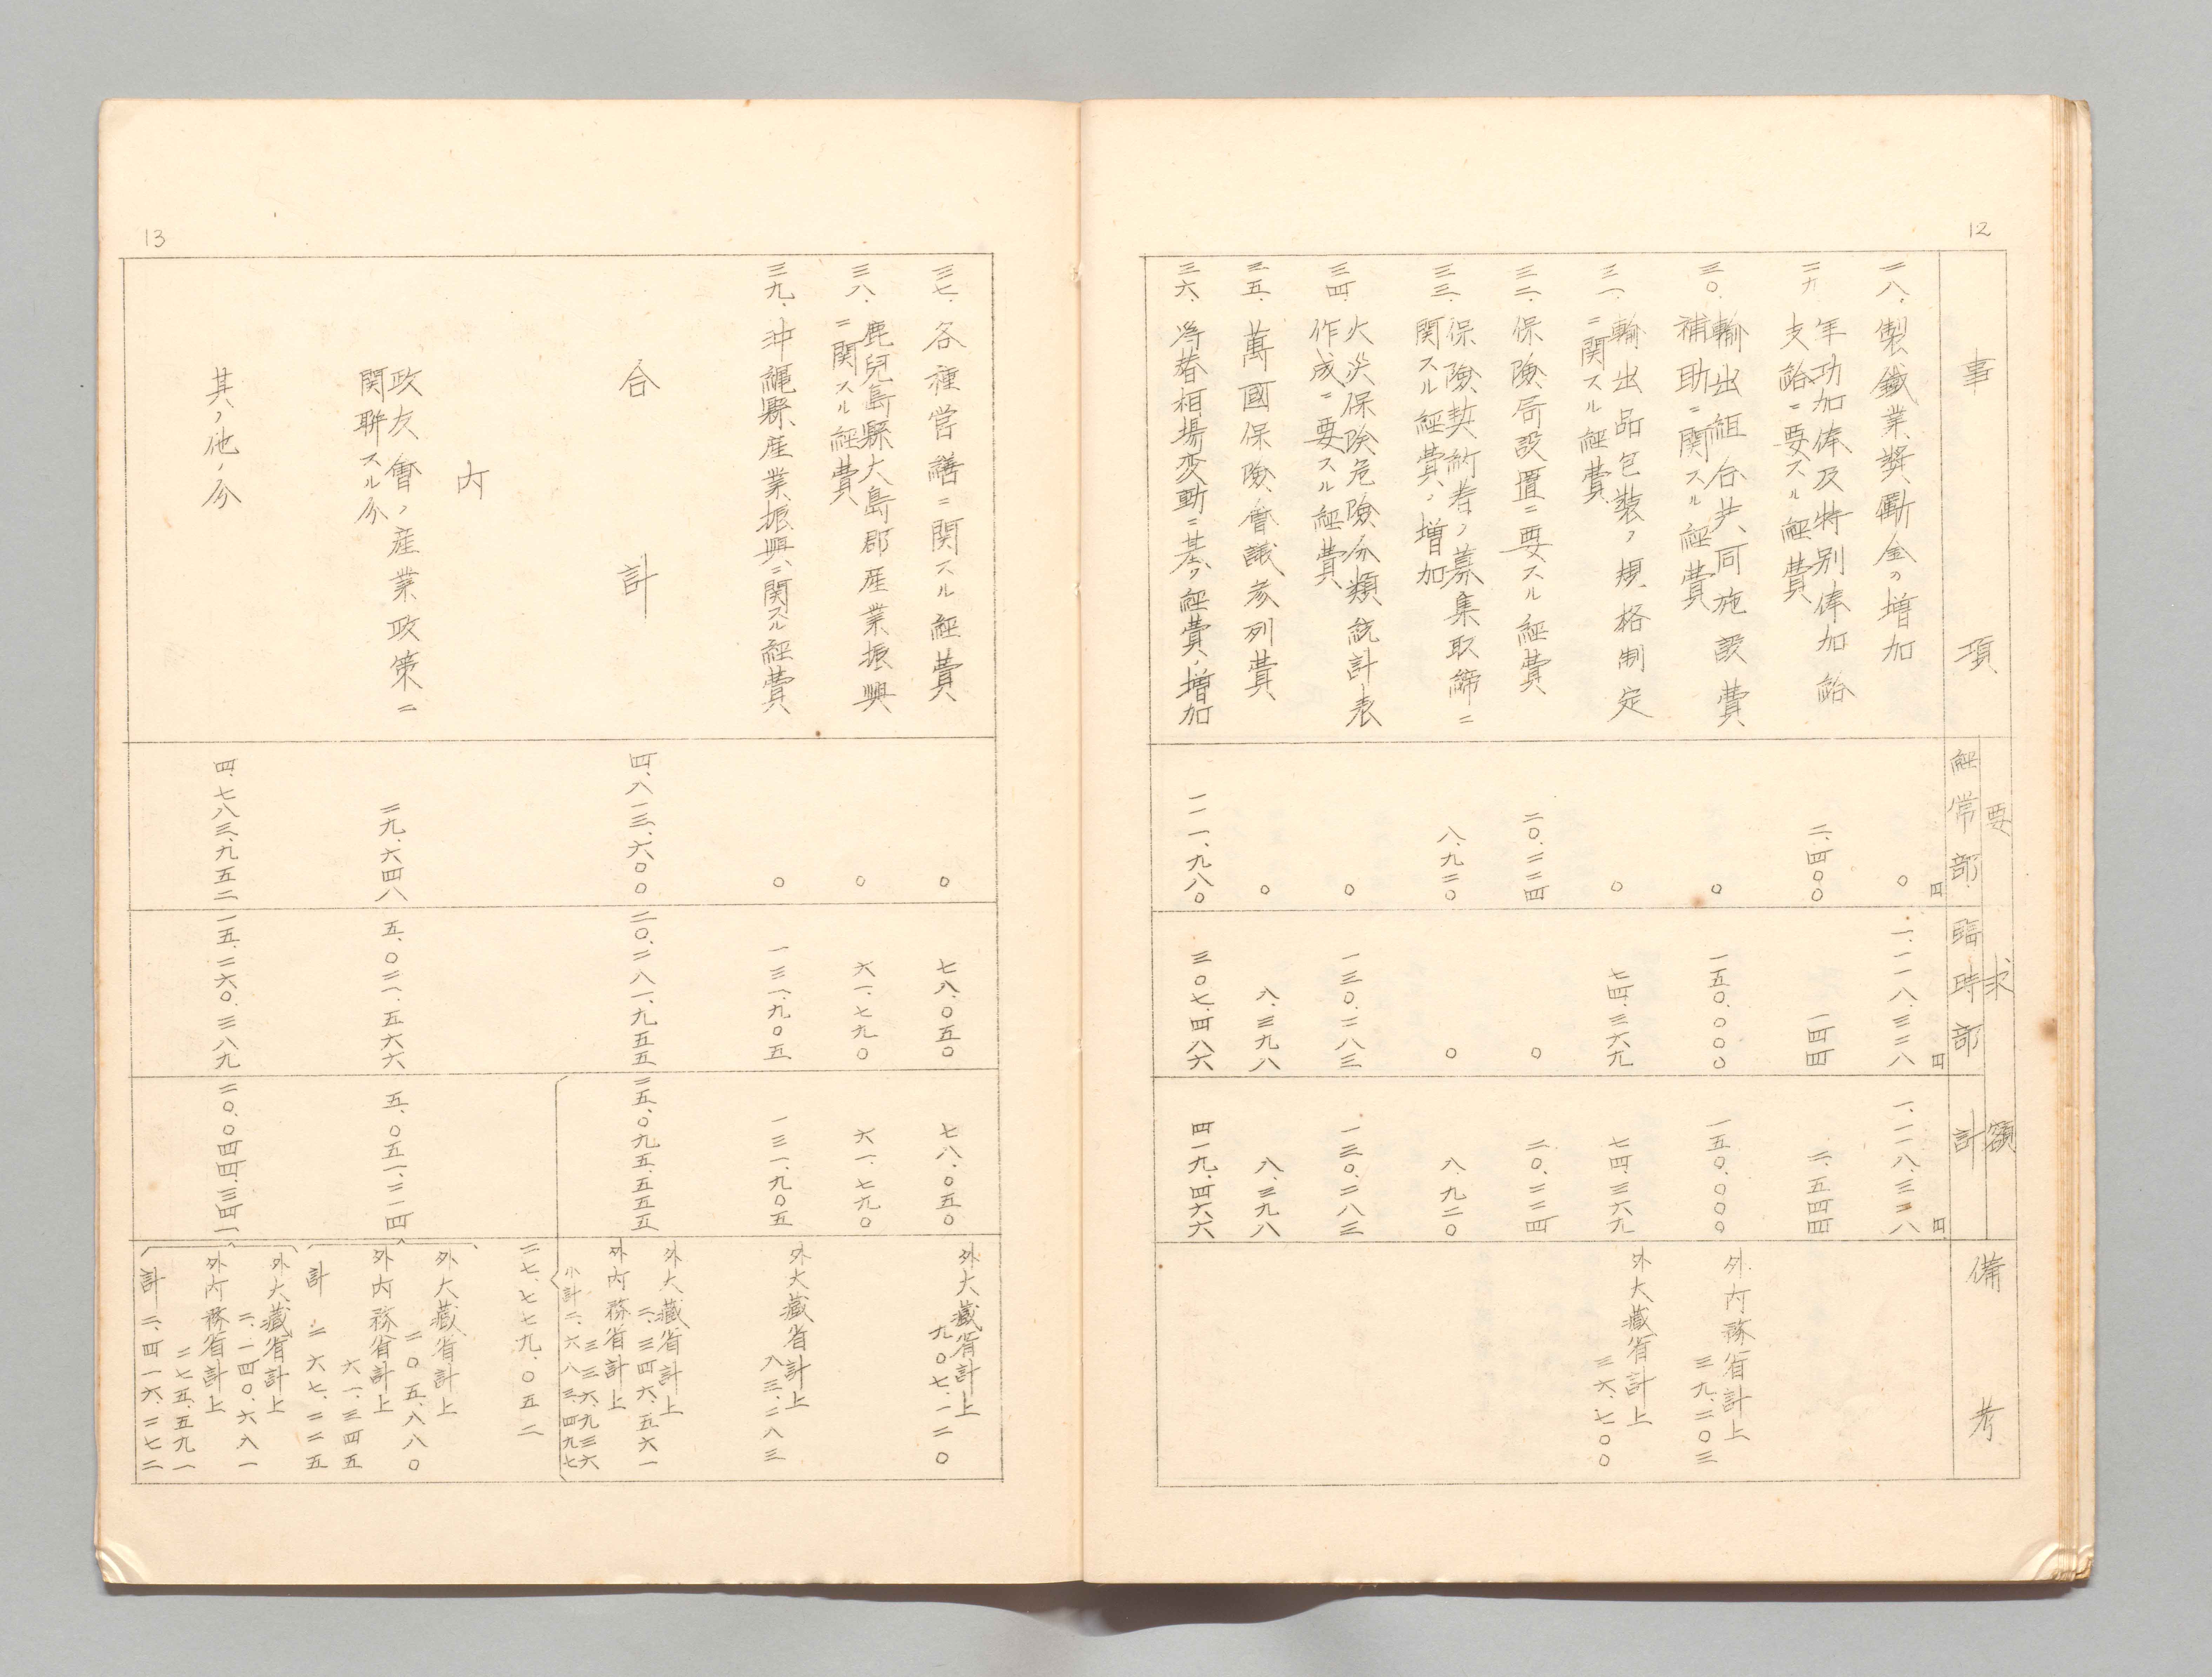 12
事項
要求額
経常部
臨時部
計
備考
二八、製鐵業奨勵金の増加
円
〇
円
一、一一八、三二八
円
一、一一八、三二八
二九、年功加俸及特別俸加給
支給ニ要スル経費
二、四〇〇
一四四
二、五四四
三〇、輸出組合共同施設費
補助ニ関スル経費
〇
一五〇、〇〇〇
一五〇、〇〇〇
外内務省計上
三九、二〇三
三一、輸出品包装ノ規格制定
ニ関スル経費
〇
七四、三六九
七四、三六九
外大藏省計上
三六、七〇〇
三二、保險局設置ニ要スル経費
二〇、二二四
〇
二〇、二二四
三三、保險契約者ノ募集取締ニ
関スル経費ノ増加
八、九二〇
〇
八、九二〇
三四、火災保険危險分類統計表
作成ニ要スル経費
〇
一三〇、二八三
一三〇、二八三
三五、萬國保險會議参列費
〇
八、三九八
八、三九八
三六、為替相場変動ニ基ク経費ノ増加
一一一、九八〇
三〇七、四八六
四一九、四六六
13
三七、各種営繕ニ関スル経費
〇
七八、〇五〇
七八、〇五〇
外大藏省計上
九〇七、一二〇
三八、鹿兒島縣大島郡産業振興
ニ関スル経費
〇
六一、七九〇
六一、七九〇
三九、沖縄縣産業振興ニ関スル経費
〇
一三一、九〇五
一三一、九〇五
外大藏省計上
八三、二八三
合計
四、八一三、六〇〇
二〇、二八一、九五五
二五、〇九五、五五五
外大藏省計上
二、三四六、五六一
外内務省計上
三三六、九三六
小計二、六八三、四九七
二七、七七九、〇五二
内
政友會ノ産業政策ニ
関聯スル分
二九、六四八
五、〇二一、五六六
五、〇五一、二一四
外大藏省計上
二〇五、八八〇
外内務省計上
六一、三四五
計二六七、二二五
其ノ他ノ分
四、七八三、九五二
一五、二六〇、三八九
二〇、〇四四、三四一
外大藏省計上
二、一四〇、六八一
外内務省計上
二七五、五九一
計二、四一六、二七二